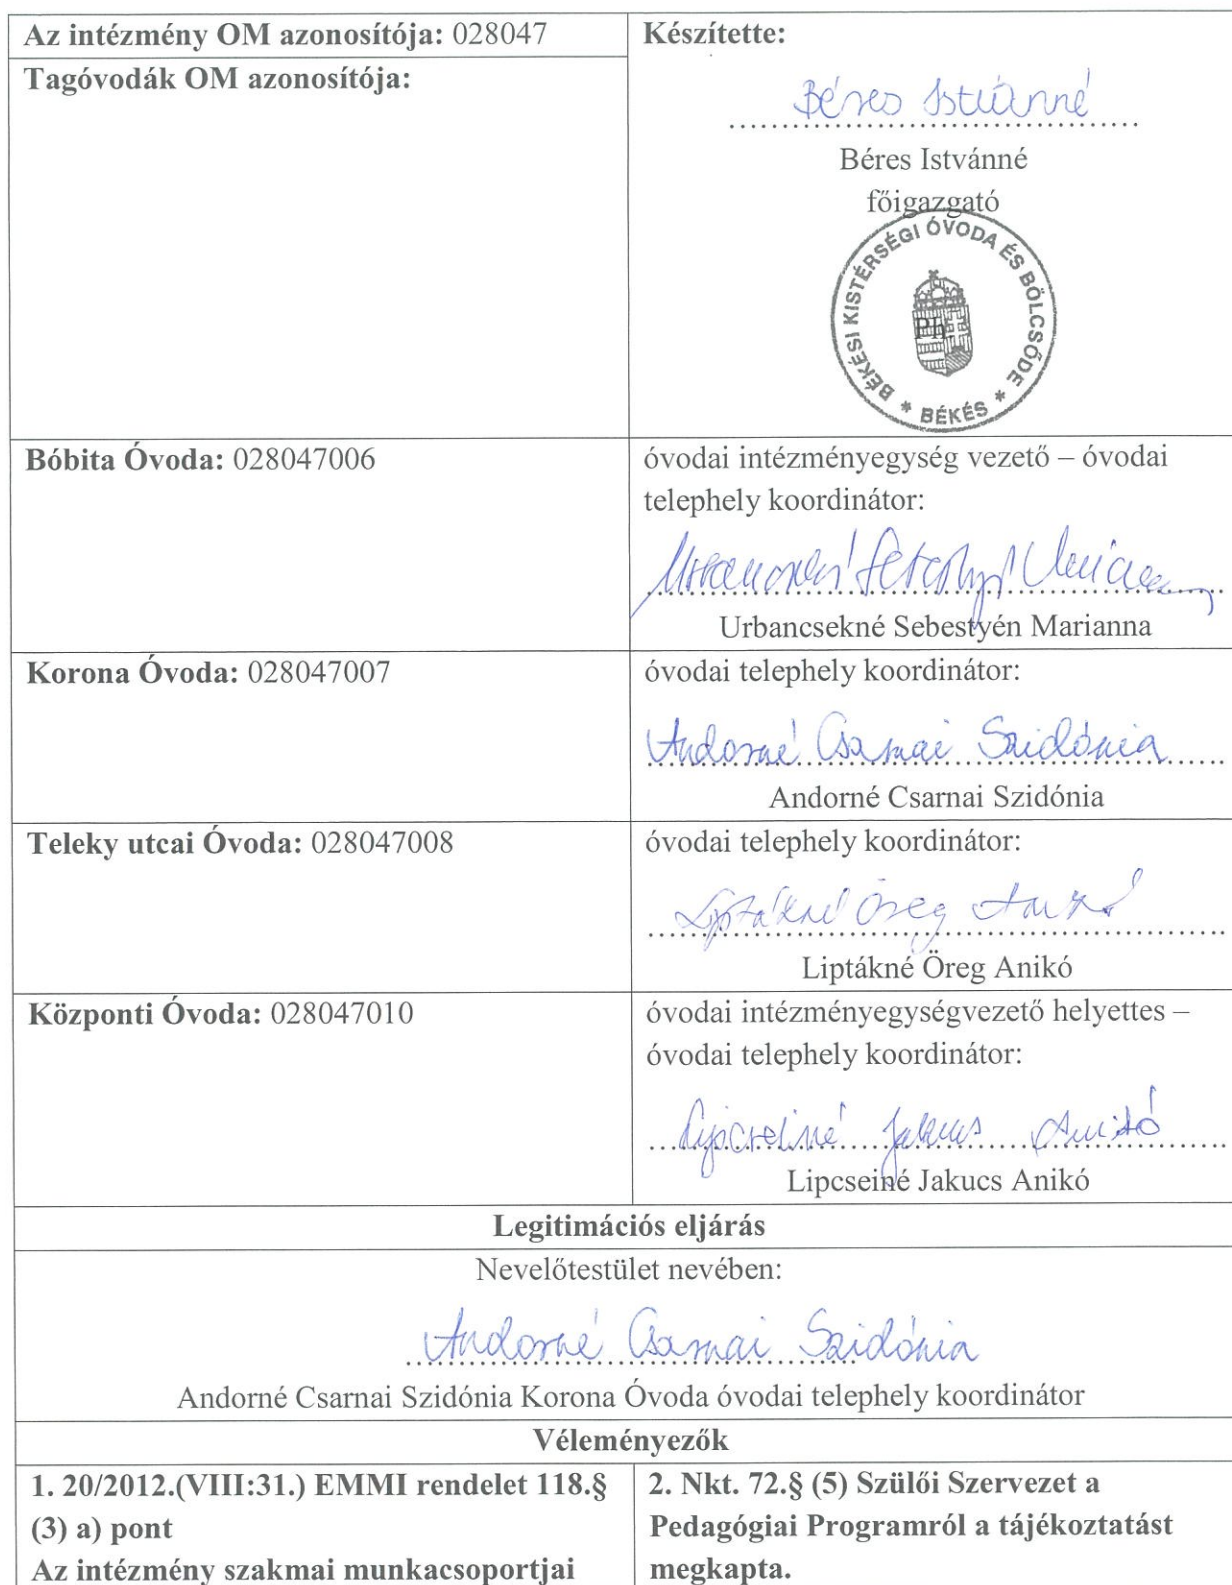 Az intézmény OM azonosítója: 028047
Tagóvodák OM azonosítója:
Készítette:
Béres Istvánné
Béres Istvánné
főigazgató
BÉKÉSI KISTÉRSÉGI ÓVODA ÉS BÖLCSŐDE
Ph.
* BÉKÉS *
Bóbita Óvoda: 028047006
óvodai intézményegység vezető – óvodai
telephely koordinátor:
Urbancsekné Sebestyén Marianna
Korona Óvoda: 028047007
óvodai telephely koordinátor:
Andorné Csarnai Szidónia
Andorné Csarnai Szidónia
Teleky utcai Óvoda: 028047008
óvodai telephely koordinátor:
Liptákné Öreg Anikó
Liptákné Öreg Anikó
Központi Óvoda: 028047010
óvodai intézményegységvezető helyettes –
óvodai telephely koordinátor:
Lipcseiné Jakucs Anikó
Lipcseiné Jakucs Anikó
Legitimációs eljárás
Nevelőtestület nevében:
Andorné Csarnai Szidónia
Andorné Csarnai Szidónia Korona Óvoda óvodai telephely koordinátor
Véleményezők
1. 20/2012.(VIII:31.) EMMI rendelet 118.§
(3) a) pont
Az intézmény szakmai munkacsoportjai
2. Nkt. 72.§ (5) Szülői Szervezet a
Pedagógiai Programról a tájékoztatást
megkapta.